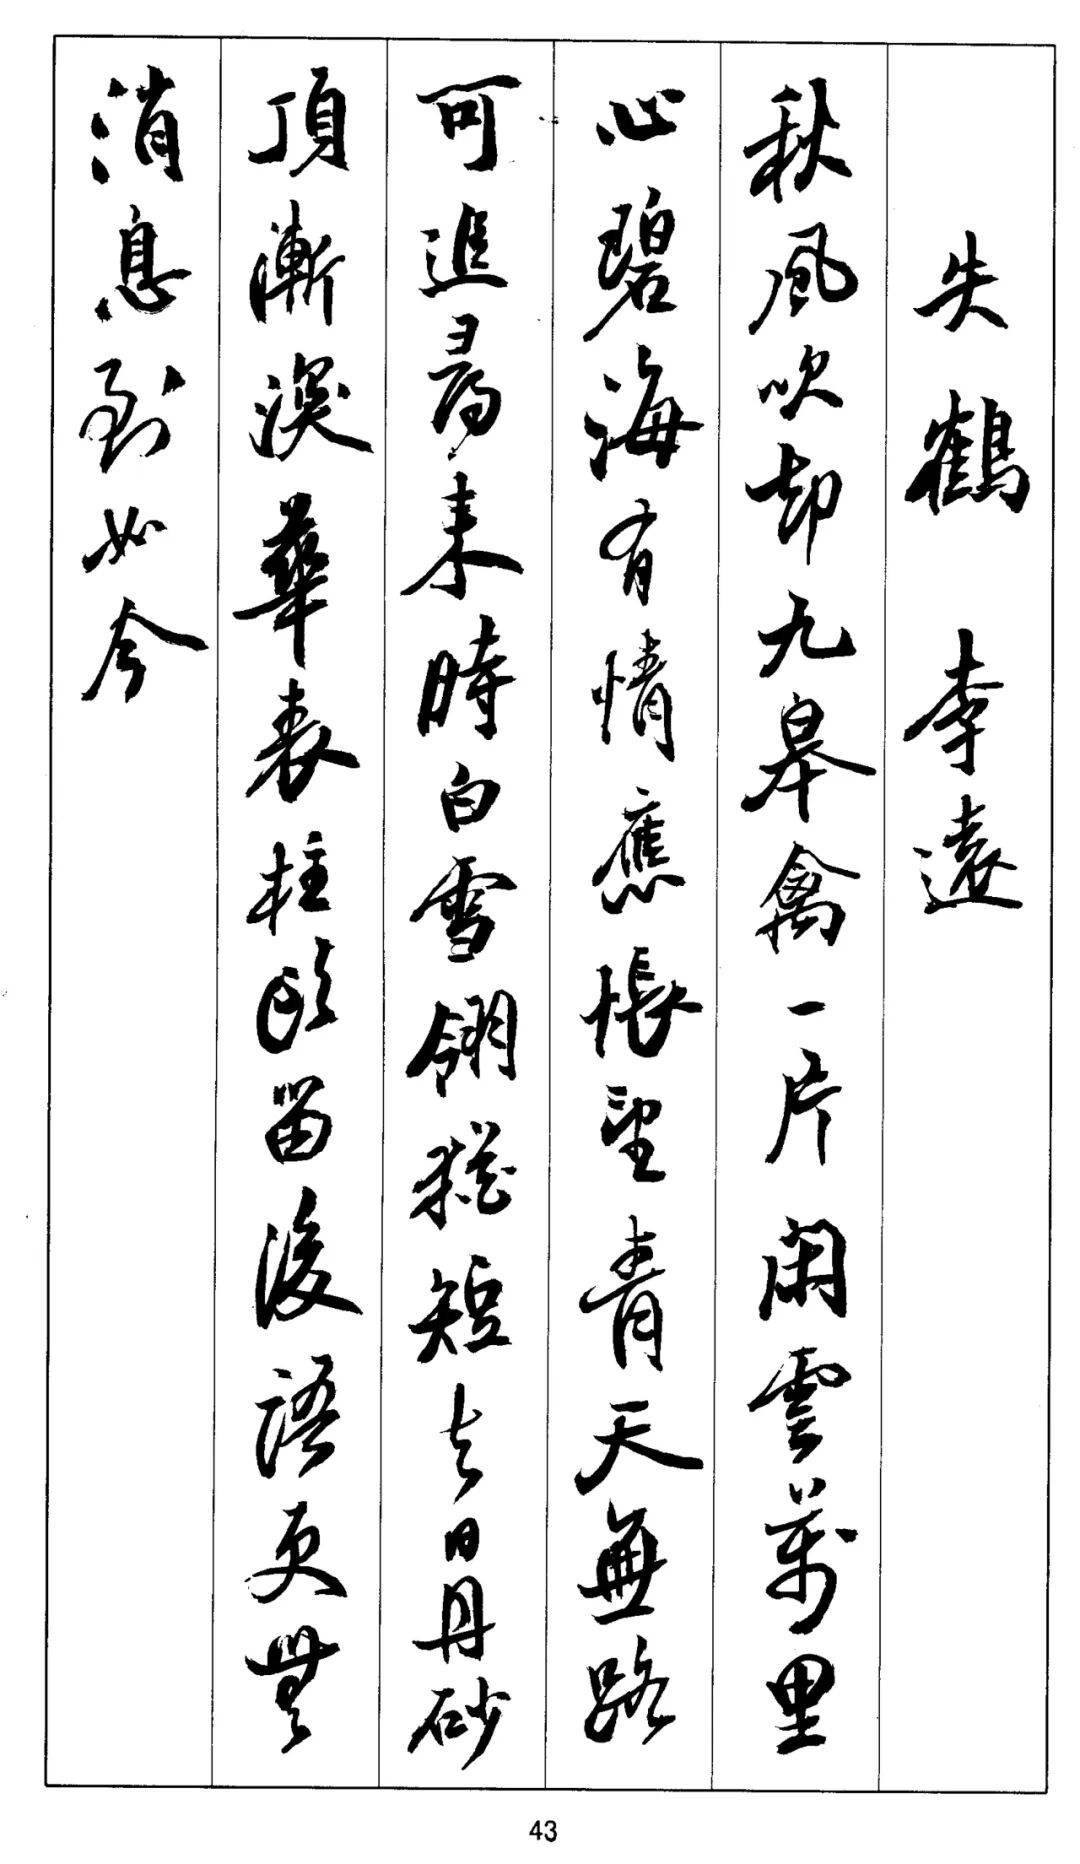 失鶴 李遠
秋風吹却九皋禽一片閑雲萬里
心碧海有情應悵望青天無路
可追尋来時白雪翎猶短去日丹砂
頂漸深華表柱頭留後語更無
消息到如今
43